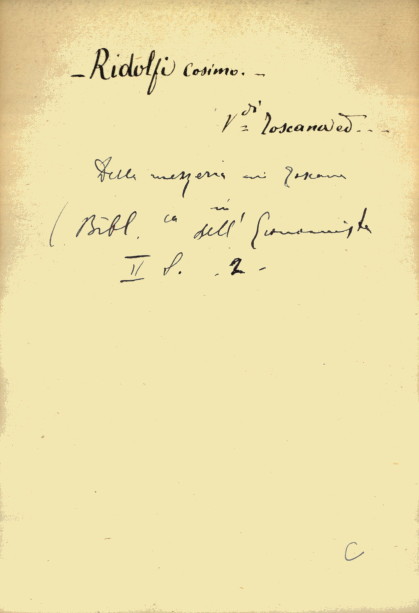 — Ridolfi Cosimo. —
V= di Toscana ed...
Della mezzeria in Toscana
in
( Bibl.ca dell' Economista
II S. . 2 -
C